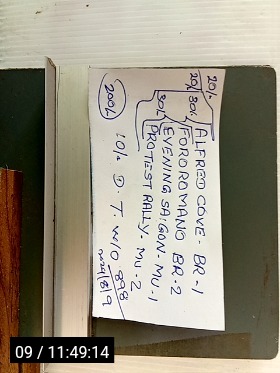 20/-
20/- 80/- ALFRED COVE - BR-1
FORDROMANO BR-2
80/- EVENING SAIGON - MU-1
PROTEST RALLY - MU-2
200/-
10/- D.T W/O 898
09 / 11:49:14